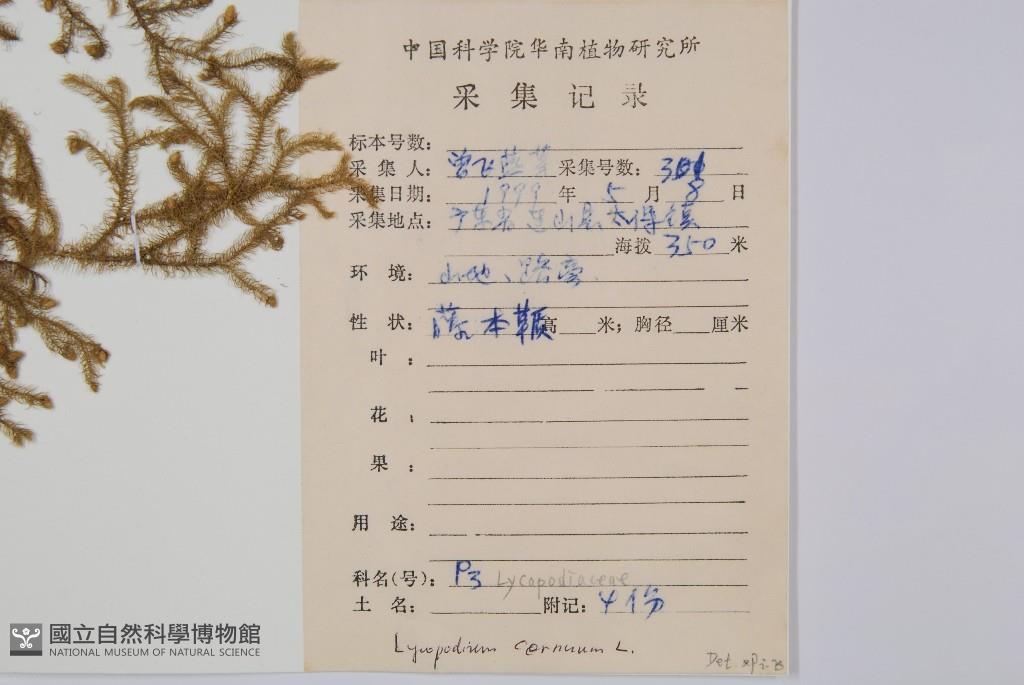 中国科学院华南植物研究所
采集记录
标本号数:
采集人: 曾飞燕等 采集号数:
采集日期: 1999 年 5 月 8 日
采集地点: 广东省连山县太保镇
海拨 350 米
环境: 山地、路旁
性状: 高 米; 胸径 厘米
叶:
花:
果:
用途:
科名(号): P3 Lycopodiaceae
土名: 附记: 4份
Lycopodium cernuum L.
Det.
國立自然科學博物館
NATIONAL MUSEUM OF NATURAL SCIENCE